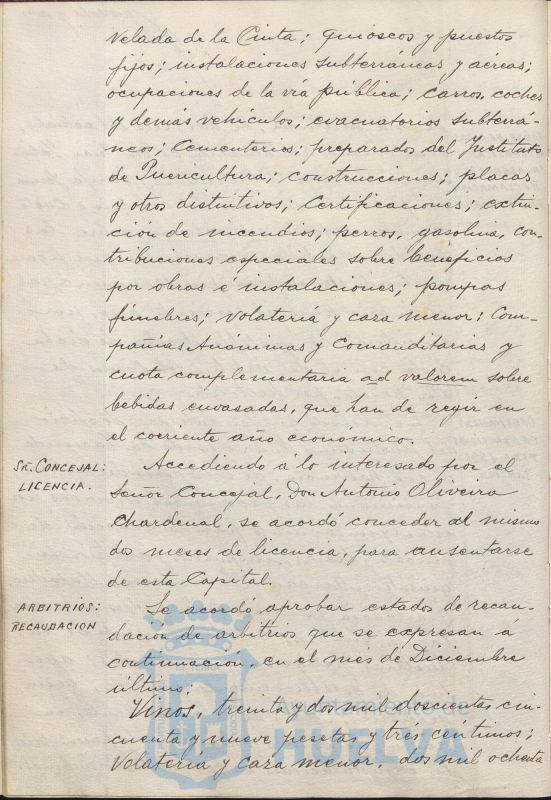 Velada de la Cinta; quioscos y puestos
fijos; instalaciones subterráneas y aéreas;
ocupaciones de la vía pública; carros, coches
y demás vehículos; evacuatorios subterrá-
neos; Cementerios; preparados del Instituto
de Puericultura; construcciones; placas
y otros distintivos; Certificaciones; extin-
ción de incendios; perros, gasolina, con-
tribuciones especiales sobre beneficios
por obras é instalaciones; pompas
fúnebres; volatería y caza menor; Com-
pañías Anónimas y Comanditarias y
cuota complementaria ad valorem sobre
bebidas envasadas, que han de regir en
el corriente año económico.
SR. CONCEJAL:
LICENCIA.
Accediendo á lo interesado por el
Señor Concejal, Don Antonio Oliveira
Chardenal, se acordó conceder al mismo
dos meses de licencia, para ausentarse
de esta Capital.
ARBITRIOS:
RECAUDACION
Se acordó aprobar estados de recau-
dación de arbitrios que se expresan á
continuacion, en el més de Diciembre
último:
Vinos, treinta y dos mil doscientas cin-
cuenta y nueve pesetas y trés céntimos;
Volatería y caza menor, dos mil ochenta
HUELVA